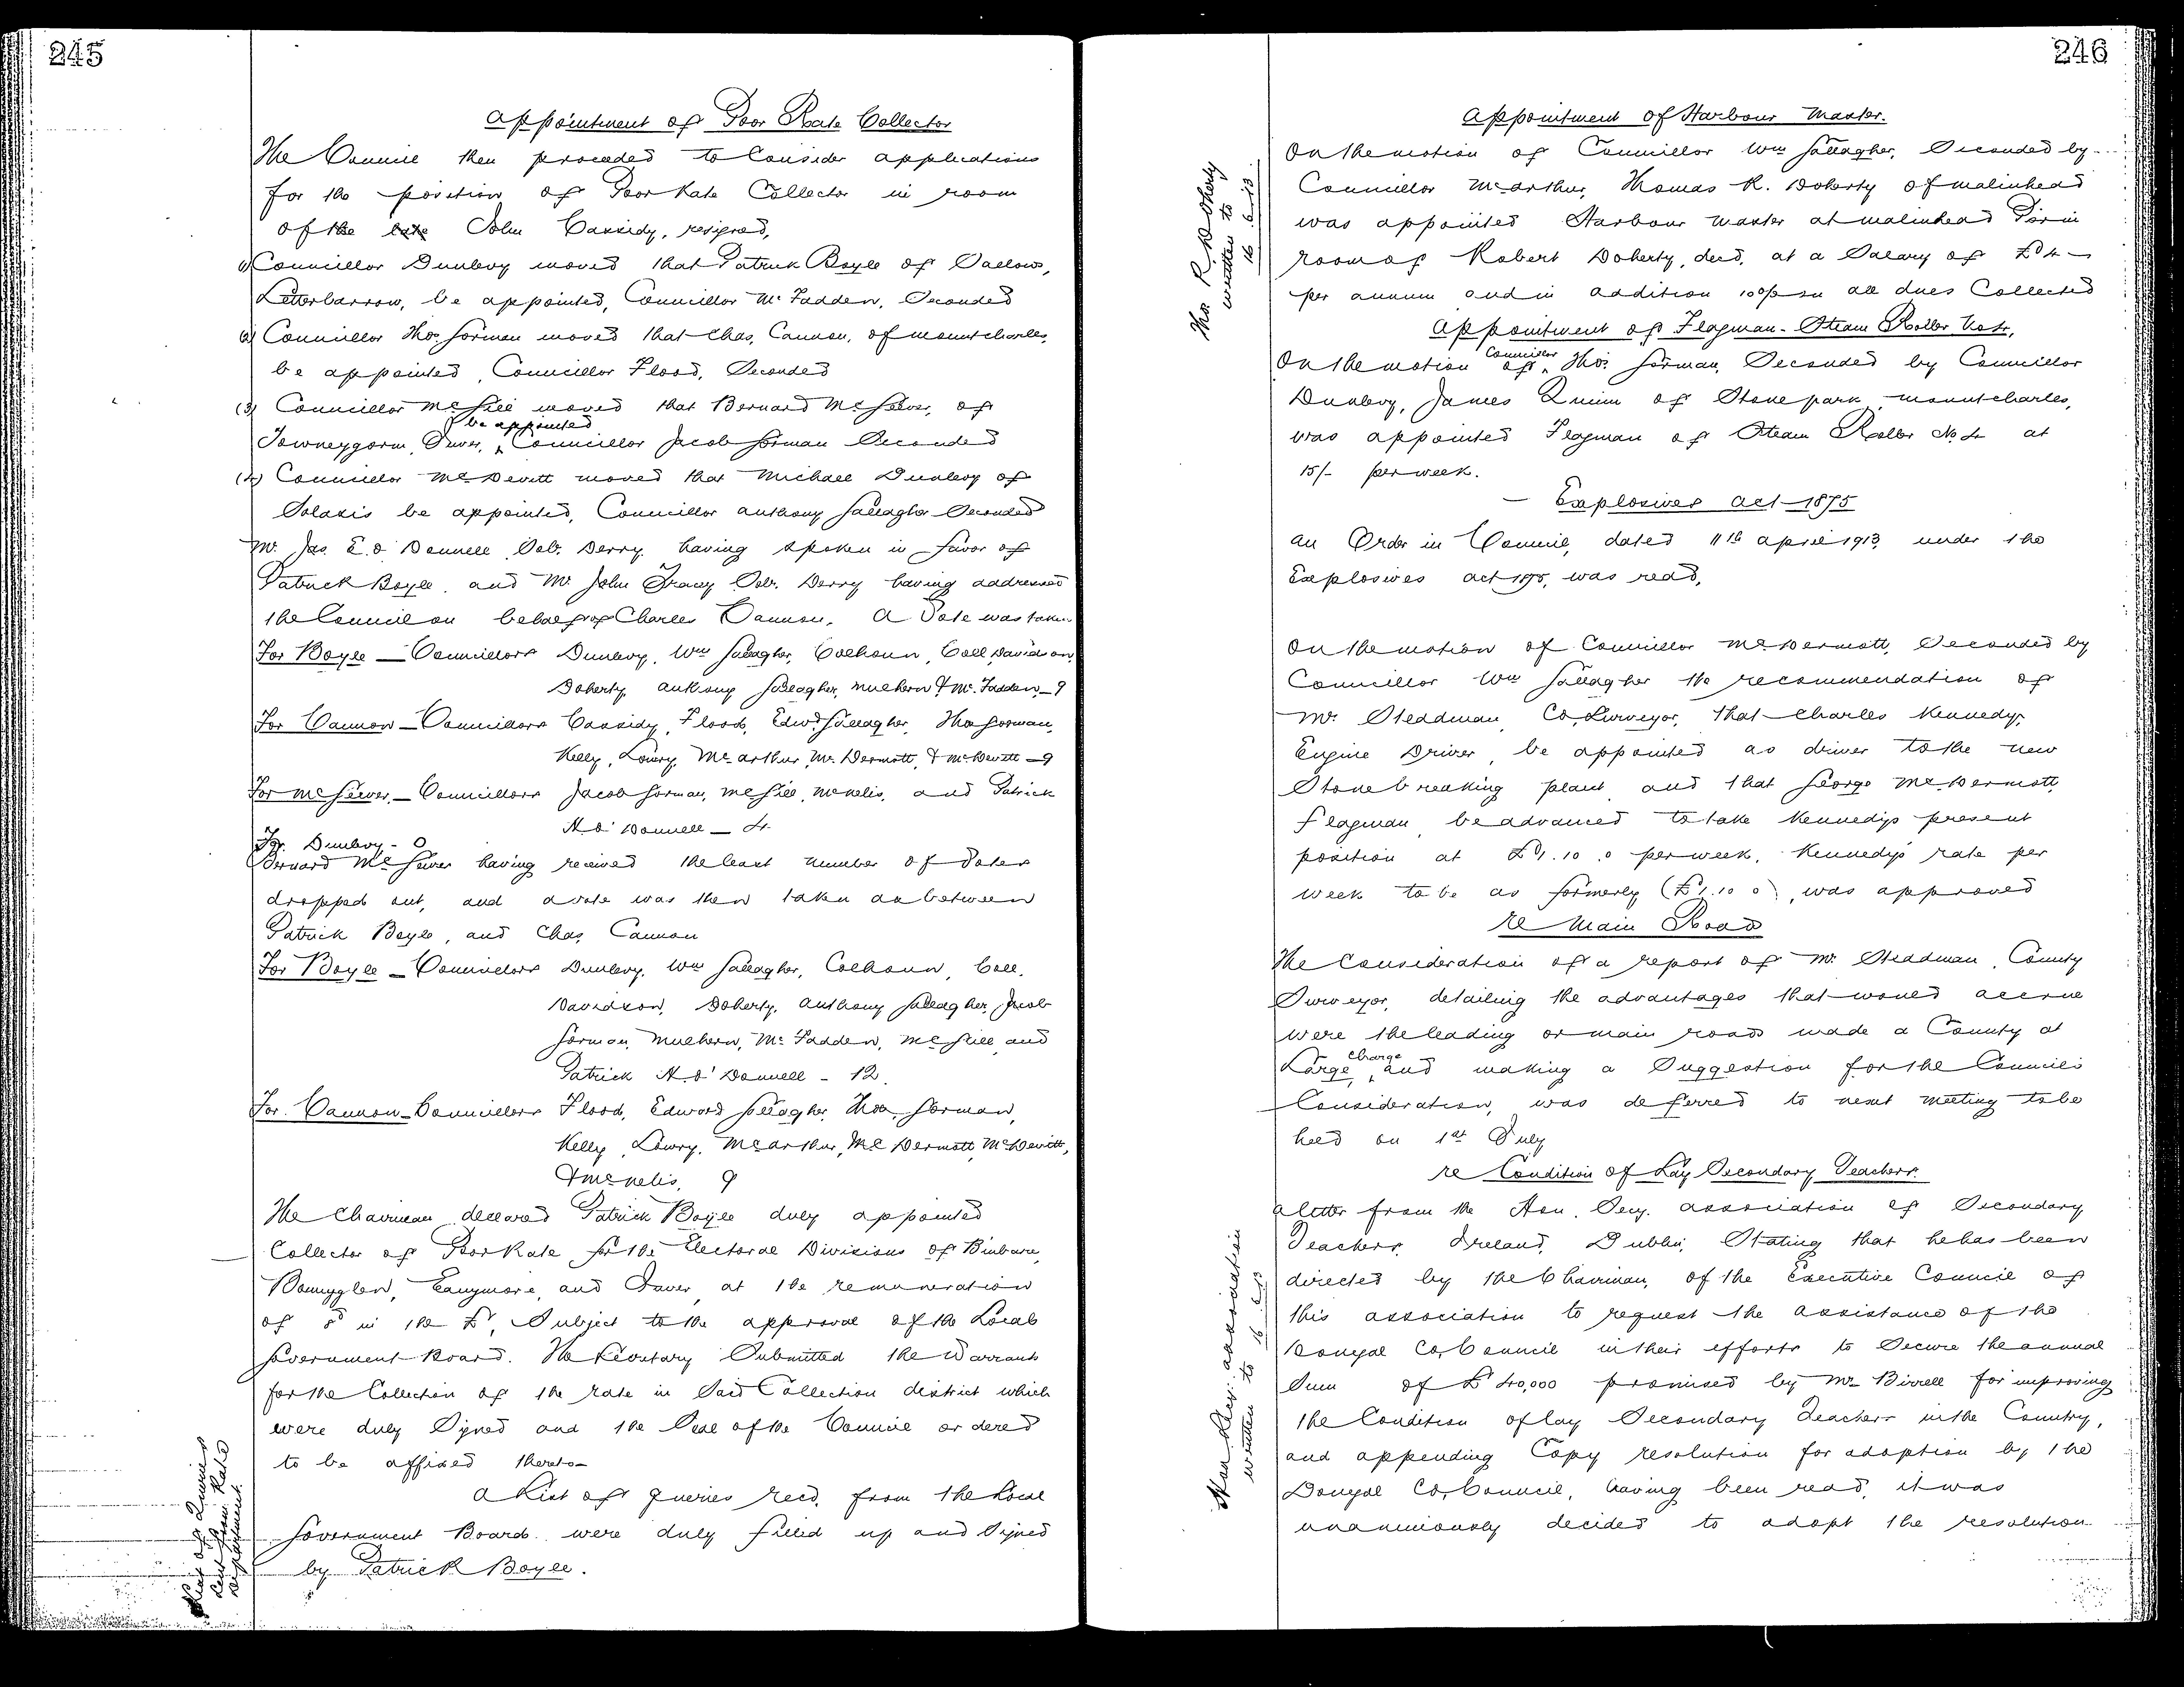 245
Appointment of Poor Rate Collector
The Council then proceeded to Consider applications
for the position of Poor Rate Collector in room
of the late John Cassidy, resigned,
(1) Councillor Dunlevy moved that Patrick Boyle of
Letterbarrow, be appointed, Councillor McFadden, Seconded
(2) Councillor Thos. Gorman moved that Chas. Cannon, of Mountcharles,
be appointed, Councillor Flood, Seconded
(3) Councillor McGill moved that Bernard McGeever, of
be appointed
Tawneygorm, Inver, Councillor Jacob Gorman Seconded
(4) Councillor McDevitt moved that Michael Dunlevy of
be appointed, Councillor Anthony Gallagher Seconded
Mr. Jas. E. O'Donnell, Solr. Derry having spoken in favor of
Patrick Boyle, and Mr John Tracy Solr. Derry having addressed
the Council on behalf of Charles Cannon. A Vote was taken
For Boyle — Councillors Dunlevy, Wm Gallagher, Colhoun, Coll, Davidson,
Doherty, Anthony Gallagher, Mulhern & McFadden — 9
For Cannon — Councillors Cassidy, Flood, Edwd. Gallagher, Thos Gorman,
Kelly, Lowry, McArthur, McDermott, & McDevitt — 9
For McGeever — Councillors Jacob Gorman, McGill, McNelis, and Patrick
A. O'Donnell — 4
For Dunlevy - 0
Bernard McGeever having received the least number of Votes
dropped out, and a vote was then taken as between
Patrick Boyle, and Chas. Cannon
For Boyle — Councillors Dunlevy, Wm Gallagher, Colhoun, Coll,
Davidson, Doherty, Anthony Gallagher, Jacob
Gorman, Mulhern, McFadden, McGill and
Patrick A. O'Donnell - 12.
For Cannon — Councillors Flood, Edward Gallagher, Thos. Gorman,
Kelly, Lowry, McArthur, McDermott, McDevitt,
& McNelis, 9
The Chairman declared Patrick Boyle duly appointed
Collector of Poor Rate for the Electoral Divisions of Binbane,
Bonnyglen, Eanymore, and Inver at the remuneration
of 8d in the £, Subject to the approval of the Local
Government Board. The Secretary Submitted the Warrants
for the Collection of the rate in Said Collection district which
were duly Signed and the Seal of the Council ordered
to be affixed thereto—
A List of Queries recd. from the Local
Government Board were duly filled up and Signed
by Patrick Boyle.
List of Queries
sent Poor Rate
Department
246
Appointment of Harbour Master.
On the motion of Councillor Wm Gallagher, Seconded by
Councillor McArthur, Thomas R. Doherty of Malinhead
was appointed Harbour Master at Malinhead Pier in
room of Robert Doherty, decd, at a Salary of £4 —
per annum and in addition 100% on all dues Collected
Thos R. Doherty
written to
16.6.13
Appointment of Flagman - Steam Roller No 4.
On the motion of Councillor Thos. Gorman, Seconded by Councillor
Dunlevy, James Quinn of Stonepark, Mountcharles,
was appointed Flagman of Steam Roller No. 4 at
15/- per week.
— Explosives Act — 1875
An Order in Council, dated 11th April 1913, under the
Explosives Act 1875, was read,
On the motion of Councillor McDermott, Seconded by
Councillor Wm Gallagher the recommendation of
Mr Steadman, Co. Surveyor, that Charles Kennedy,
Engine Driver, be appointed as driver to the new
Stonebreaking plant and that George McDermott
Flagman, be advanced to take Kennedy's present
position at £1.10.0 per week, Kennedy's rate per
week to be as formerly (£1.10 0), was approved
re Main Road
The Consideration of a report of Mr Steadman, County
Surveyor, detailing the advantages that would accrue
were the leading or main roads made a County at
Large Charge, and making a Suggestion for the Council's
Consideration, was deferred to next meeting to be
held on 1st July
re Condition of Lay Secondary Teachers.
A letter from the Hon. Secy. Association of Secondary
Teachers, Ireland, Dublin, Stating that he has been
directed by the Chairman, of the Executive Council of
this association to request the assistance of the
Donegal Co. Council in their efforts to Secure the annual
Sum of £40,000 promised by Mr Birrell for improving
the Condition of lay Secondary Teachers in the Country,
and appending Copy resolution for adoption by the
Donegal Co. Council, having been read, it was
unanimously decided to adopt the resolution
Hon Secy. Association
written to 16.6.13